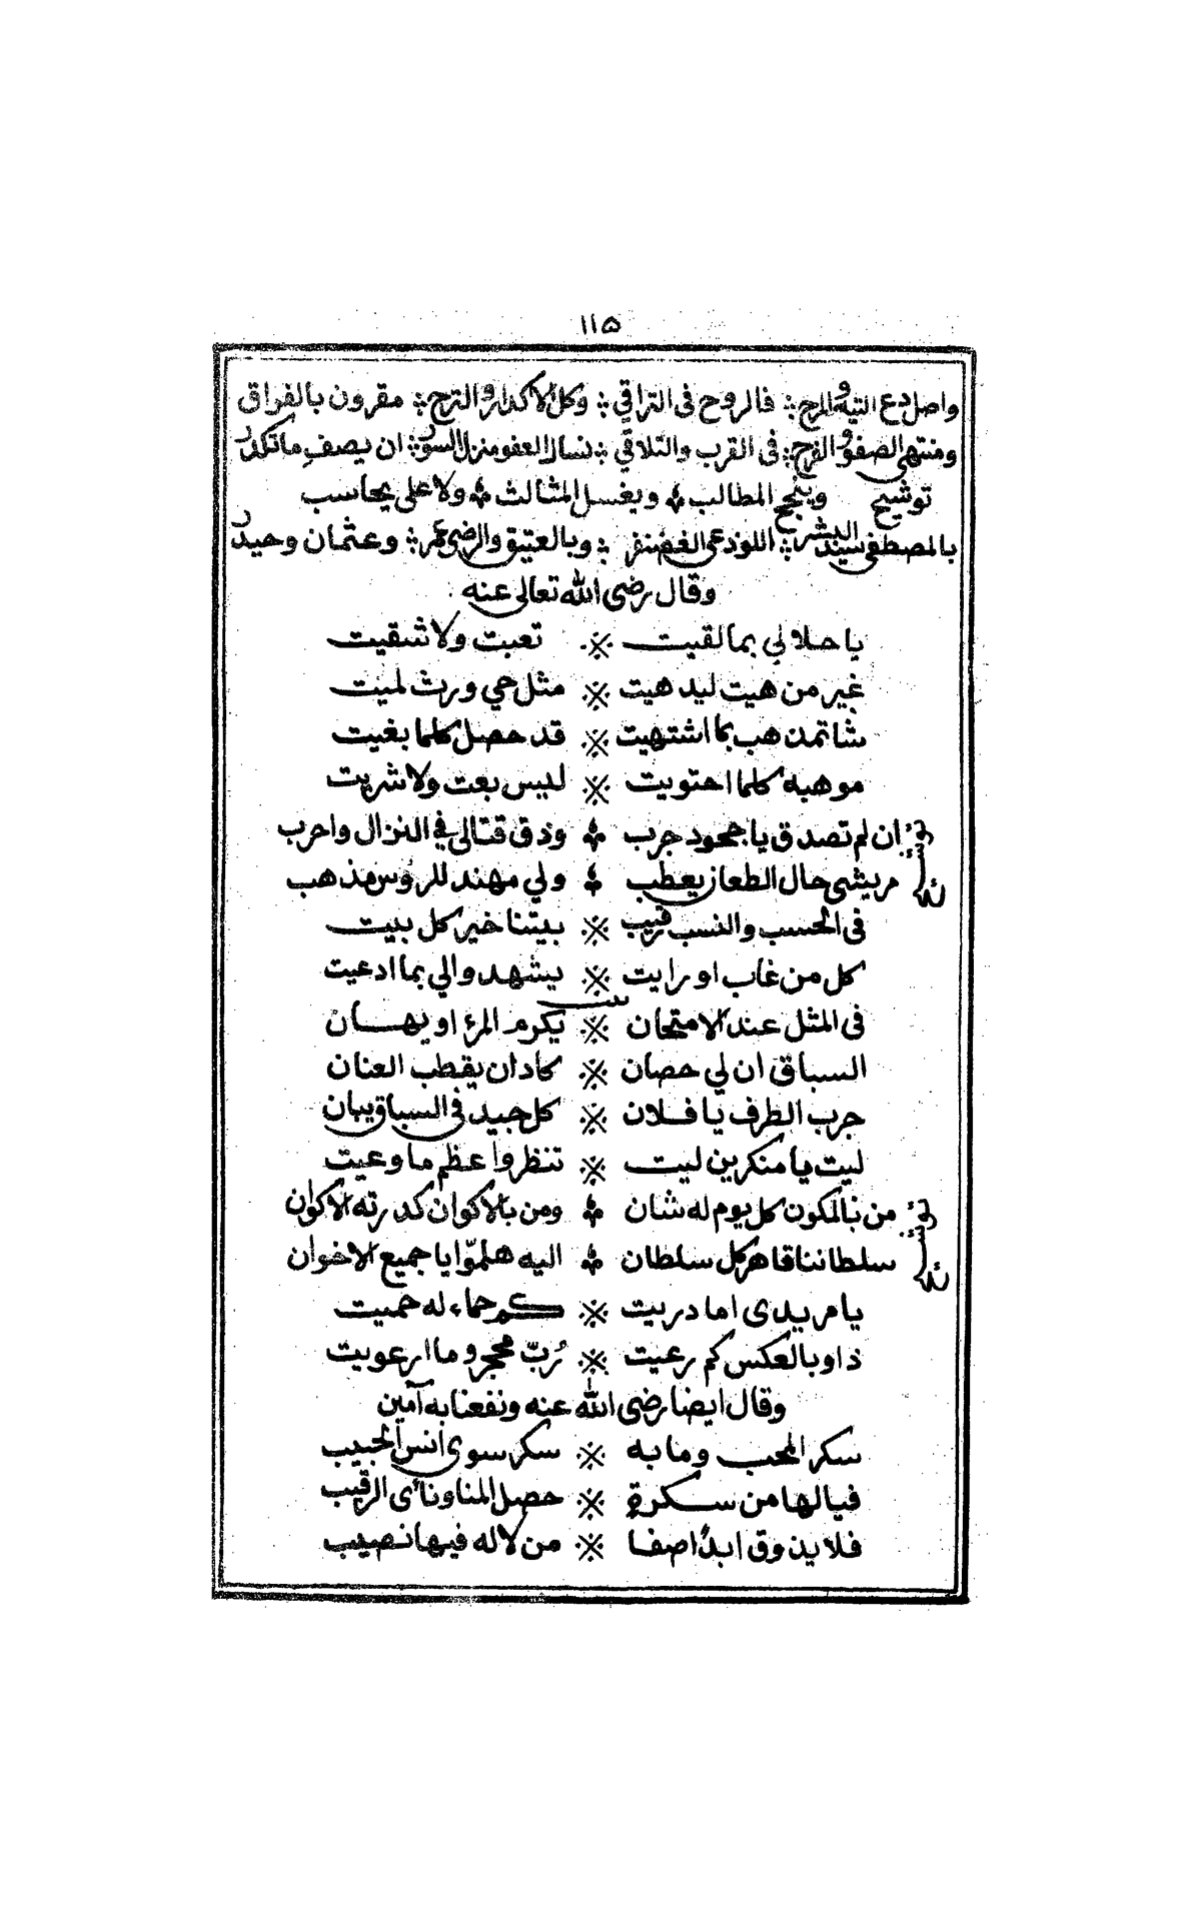 ١١٥
واصل دع التيه والمرج ⁘ فالروح فى التراقي ⁘ وكل الاكدار والترح ⁘ مقرون بالفراق
ومنتهى الصفو والفرح ⁘ فى القرب والتلاقي ⁘ نسال العفو منزل السور ⁘ ان يصف ماتكدر
توشيح وينجح المطالب ويغسل المثالث ولا على يحاسب
بالمصطفى سيد البشر ⁘ اللوذعى الغضنفر ⁘ وبالعتيق والرضى عمر ⁘ وعثمان وحيدر
وقال رضى الله تعالى عنه
ياحلا لي بما لقيت ※ تعبت ولا شقيت
غير من هيت ليد هيت ※ مثل حي ورث لميت
شاتمن هب بما اشتهيت ※ قد حصل كلما بغيت
موهبه كلما احتويت ※ ليس بعت ولا شريت
توشيح ان لم تصدق يا جحود جرب وذق قتالى في النزال واحرب
مريشى حال الطعاز يعطب ولي مهند للرؤس مذهب
فى الحسب والنسب قريب ※ بيتنا خير كل بيت
كل من غاب او رايت ※ يشهد والي بما ادعيت
بيت
فى المثل عند الامتحان ※ يكرم المرء او يهان
السباق ان لي حصان ※ كاد ان يقطب العنان
جرب الطرف يا فلان ※ كل جيد فى السباق يبان
ليت يا منكرين ليت ※ تنظروا عظم ما وعيت
توشيح من نبالمكون كل يوم له شان ومن بالاكوان كدرته الاكوان
سلطاننا قاهر كل سلطان اليه هلموا يا جميع الاخوان
يا مريدى اما دريت ※ كم حماء له حميت
ذا وبالعكس كم رعيت ※ رُبّ محجر وما ارعويت
وقال ايضا رضى الله عنه ونفعنا به آمين
سكر المحب وما به ※ سكر سوى انس الحبيب
فيالها من سكرةٍ ※ حصل المنا ونأى الرقيب
فلا يذوق ابداً صفا ※ من لا له فيها نصيب